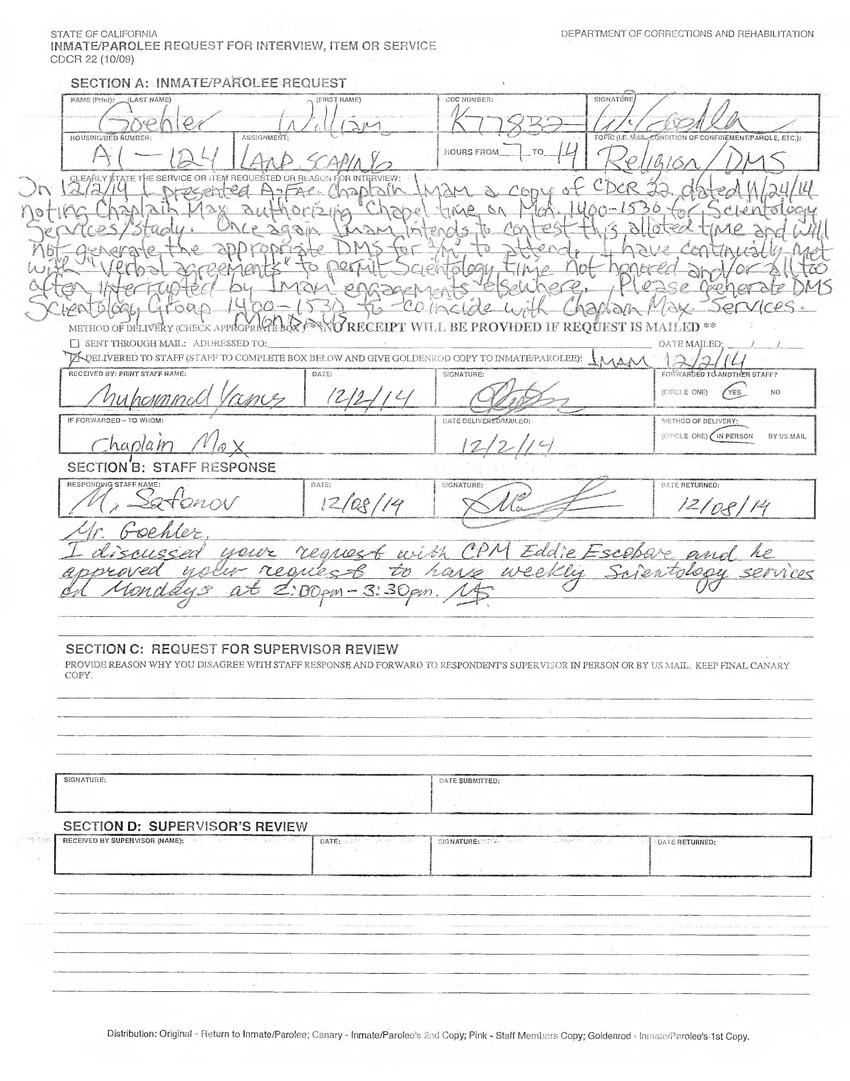 STATE OF CALIFORNIA
DEPARTMENT OF CORRECTIONS AND REHABILITATION
INMATE/PAROLEE REQUEST FOR INTERVIEW, ITEM OR SERVICE
CDCR 22 (10/09)
SECTION A: INMATE/PAROLEE REQUEST
NAME (Print): (LAST NAME) (FIRST NAME) CDC NUMBER: SIGNATURE:
Goehler William K77832 W. Goehler
HOUSING/BED NUMBER: ASSIGNMENT: HOURS FROM 7 TO 14 TOPIC (I.E. MAIL, CONDITION OF CONFINEMENT/PAROLE, ETC.):
A1-124 LANDSCAPING Religion/DMS
CLEARLY STATE THE SERVICE OR ITEM REQUESTED OR REASON FOR INTERVIEW:
On 12/2/14 I presented A-FAC. Chaplain Imam a copy of CDCR 22 dated 11/24/14
noting Chaplain Max authorizing Chapel time on Mon. 1400-1530 for Scientology
Services/Study. Once again Imam intends to contest this alloted time and will
not generate the appropriate DMS for I/M to attend. I have continually met
with "Verbal agreements" to permit Scientology time not honored and/or all too
often interrupted by Imam engagements elsewhere. Please generate DMS
Scientology Group 1400-1530 to coincide with Chaplain Max Services.
MONDAYS
METHOD OF DELIVERY (CHECK APPROPRIATE BOX) **NO RECEIPT WILL BE PROVIDED IF REQUEST IS MAILED **
SENT THROUGH MAIL: ADDRESSED TO: DATE MAILED: / /
DELIVERED TO STAFF (STAFF TO COMPLETE BOX BELOW AND GIVE GOLDENROD COPY TO INMATE/PAROLEE): IMAM 12/2/14
RECEIVED BY: PRINT STAFF NAME: DATE: SIGNATURE: FORWARDED TO ANOTHER STAFF?
Muhammad 12/2/14 (CIRCLE ONE) YES NO
IF FORWARDED – TO WHOM: DATE DELIVERED/MAILED: METHOD OF DELIVERY:
Chaplain Max 12/2/14 (CIRCLE ONE) IN PERSON BY US MAIL
SECTION B: STAFF RESPONSE
RESPONDING STAFF NAME: DATE: SIGNATURE: DATE RETURNED:
M. Safonov 12/08/14 12/08/14
Mr. Goehler,
I discussed your request with CPM Eddie Escobare and he
approved your request to have weekly Scientology services
on Mondays at 2:00pm-3:30pm. MS
SECTION C: REQUEST FOR SUPERVISOR REVIEW
PROVIDE REASON WHY YOU DISAGREE WITH STAFF RESPONSE AND FORWARD TO RESPONDENT'S SUPERVISOR IN PERSON OR BY US MAIL. KEEP FINAL CANARY
COPY.
SIGNATURE: DATE SUBMITTED:
SECTION D: SUPERVISOR'S REVIEW
RECEIVED BY SUPERVISOR (NAME): DATE: SIGNATURE: DATE RETURNED:
Distribution: Original - Return to Inmate/Parolee; Canary - Inmate/Parolee's 2nd Copy; Pink - Staff Members Copy; Goldenrod - Inmate/Parolee's 1st Copy.